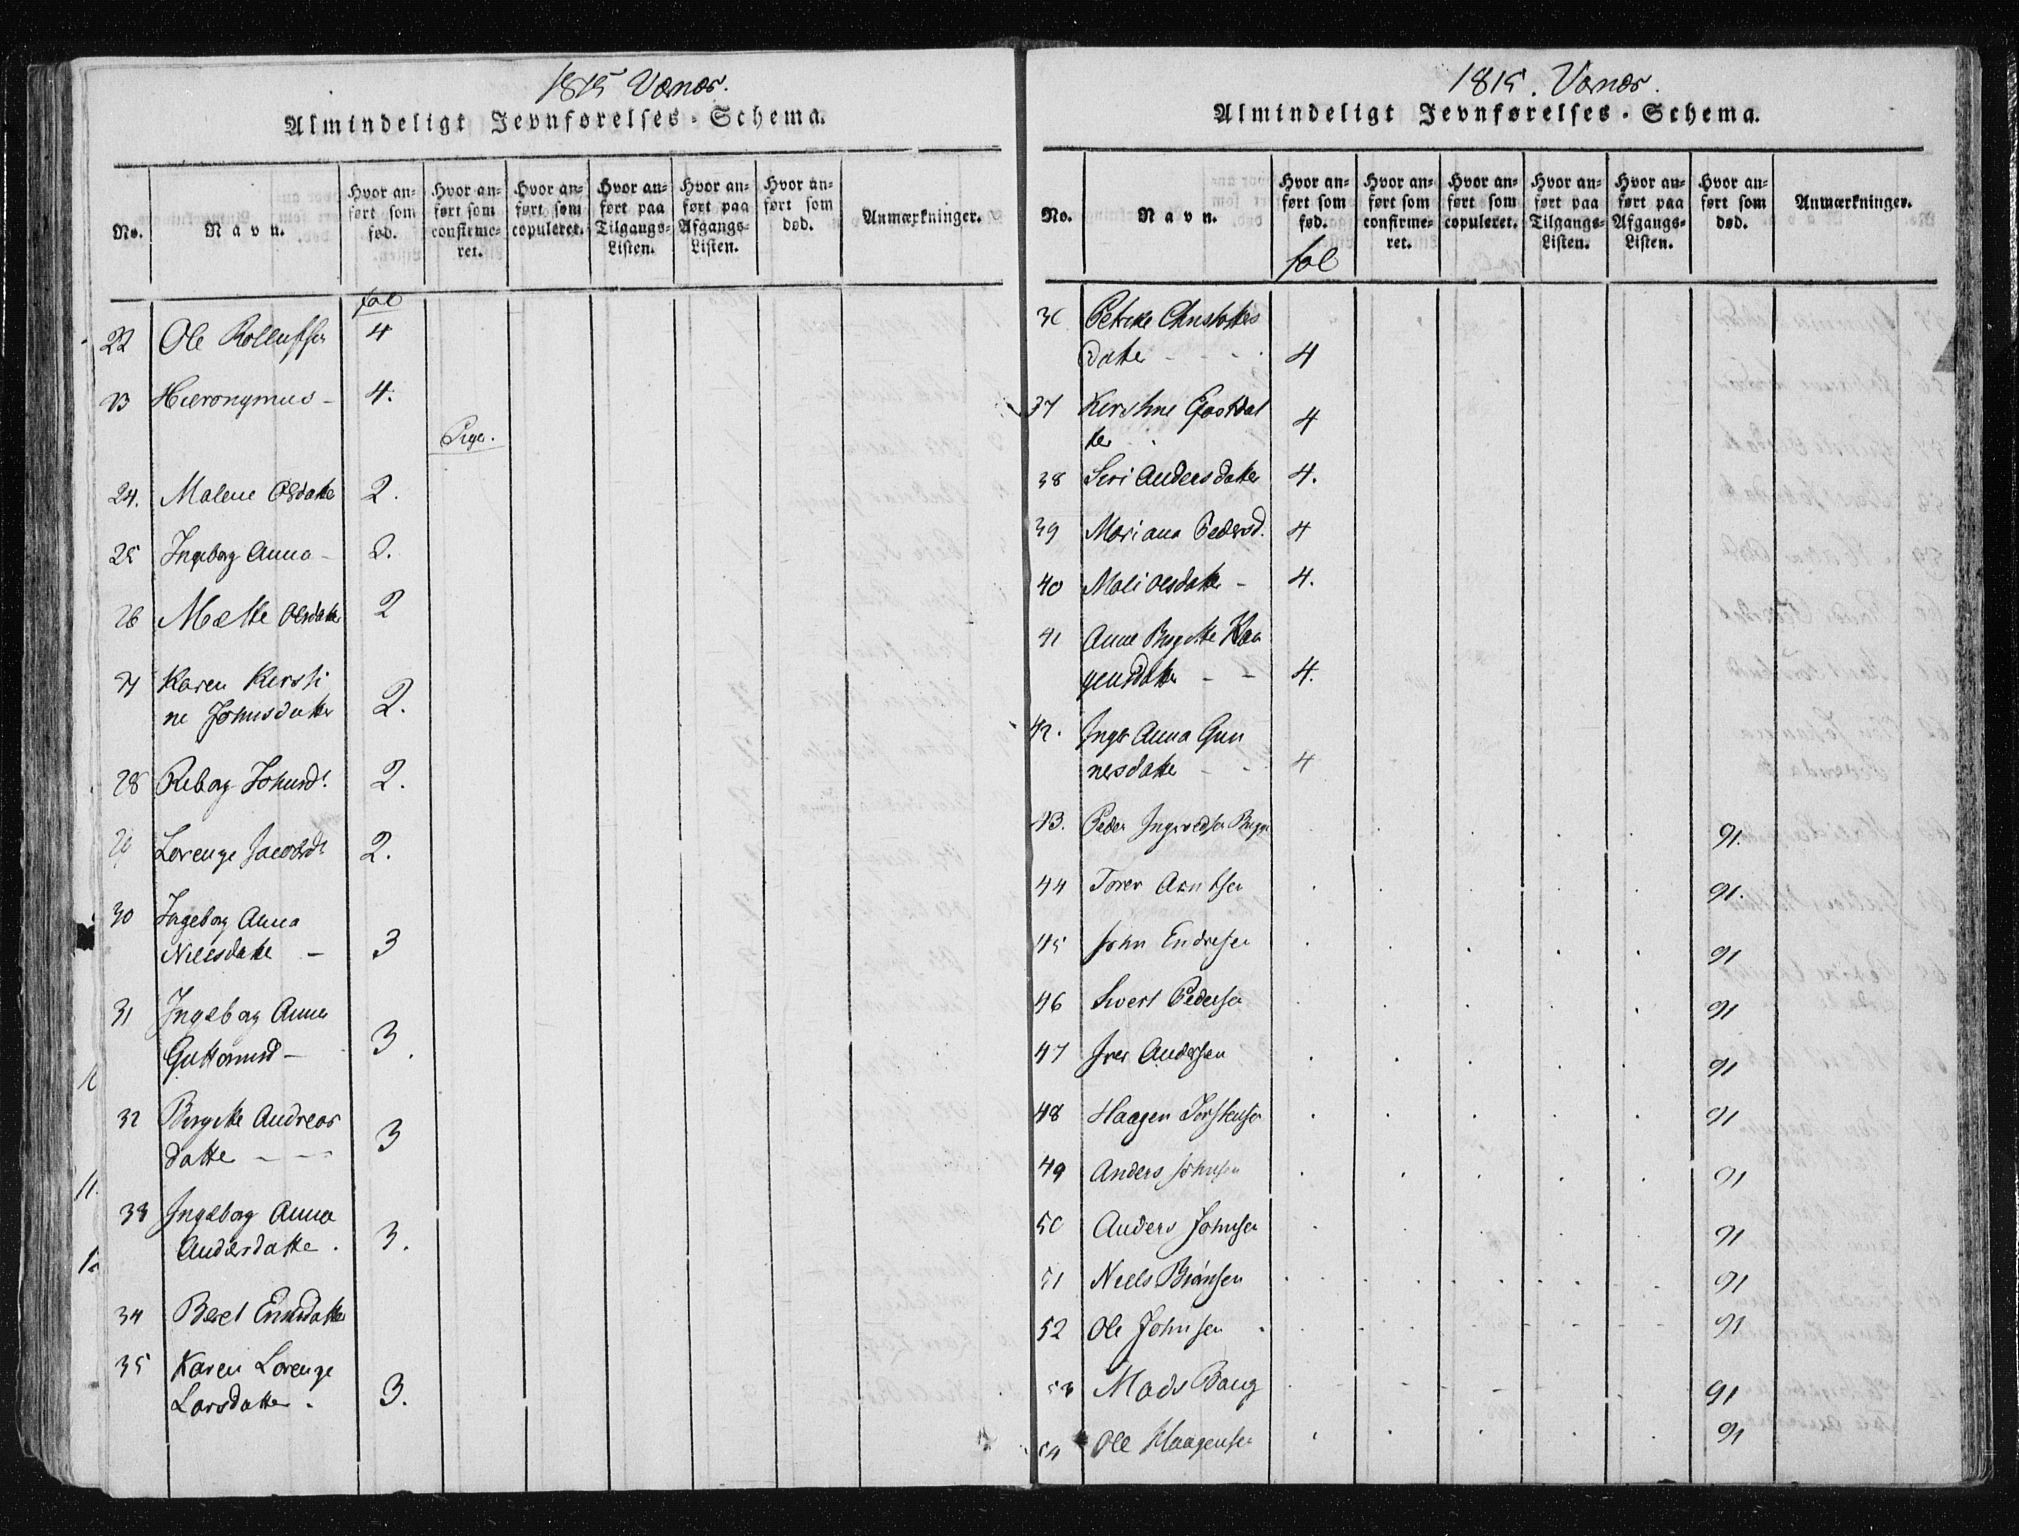 1815 Værnes.
Almindeligt Jevnførelses-Schema.
No.
Navn.
Hvor anført som fød.
Hvor anført som confirmeret.
Hvor anført som copuleret.
Hvor anført paa Tilgangs-Listen.
Hvor anført paa Afgangs-Listen.
Hvor anført som død.
Anmærkninger.
fol
22 Ole Rolluksen 4
23 Hieronymus - 4.
Piger.
24. Malene Olsdatter 2.
25 Ingeborg Anna - 2.
26 Mætte Olsdatter 2
27 Karen Kersti
ne Johnsdatter 2.
28 Reborg Johnsd. 2.
29 Lorenze Jacobsd. 2.
30 Ingeborg Anna
Nielsdatter - 3
31 Ingeborg Anna
Guttormsd - 3.
32 Birgitte Andreas
datter - - 3
33 Ingeborg Anna
Andersdatter. 3.
34 Beret Ennisdatter
35 Karen Lorenze
Larsdatter. 3.
1815. Værnes.
Almindeligt Jevnførelses-Schema.
No.
Navn.
Hvor anført som fød.
Hvor anført som confirmeret.
Hvor anført som copuleret.
Hvor anført paa Tilgangs-Listen.
Hvor anført paa Afgangs-Listen.
Hvor anført som død.
Anmærkninger.
fol
36 Petrike Christophers
datter - - - 4
37 Kirstine
ter 4
38 Siri Andersdatter 4.
39 Mariana Pedersd. 4
40 Mali Olsdatter - 4.
41 Anne Birgitte Haa
gensdatter - - 4.
42. Inger Anna Gun
nersdatter - - 4
43. Peder Ingevoldsen Bugge 91.
44 Torer Arntsen 91.
45 John Endresen 91
46 Sivert Pedersen 91
47 Iver Andersen 91
48 Haagen Torstensen 91
49 Anders Johnsen 91
50 Anders Johnsen 91
51 Niels Biörnsen 91
52 Ole Johnsen 91
53 Mads Bang 91
54 Ole Haagensen 91